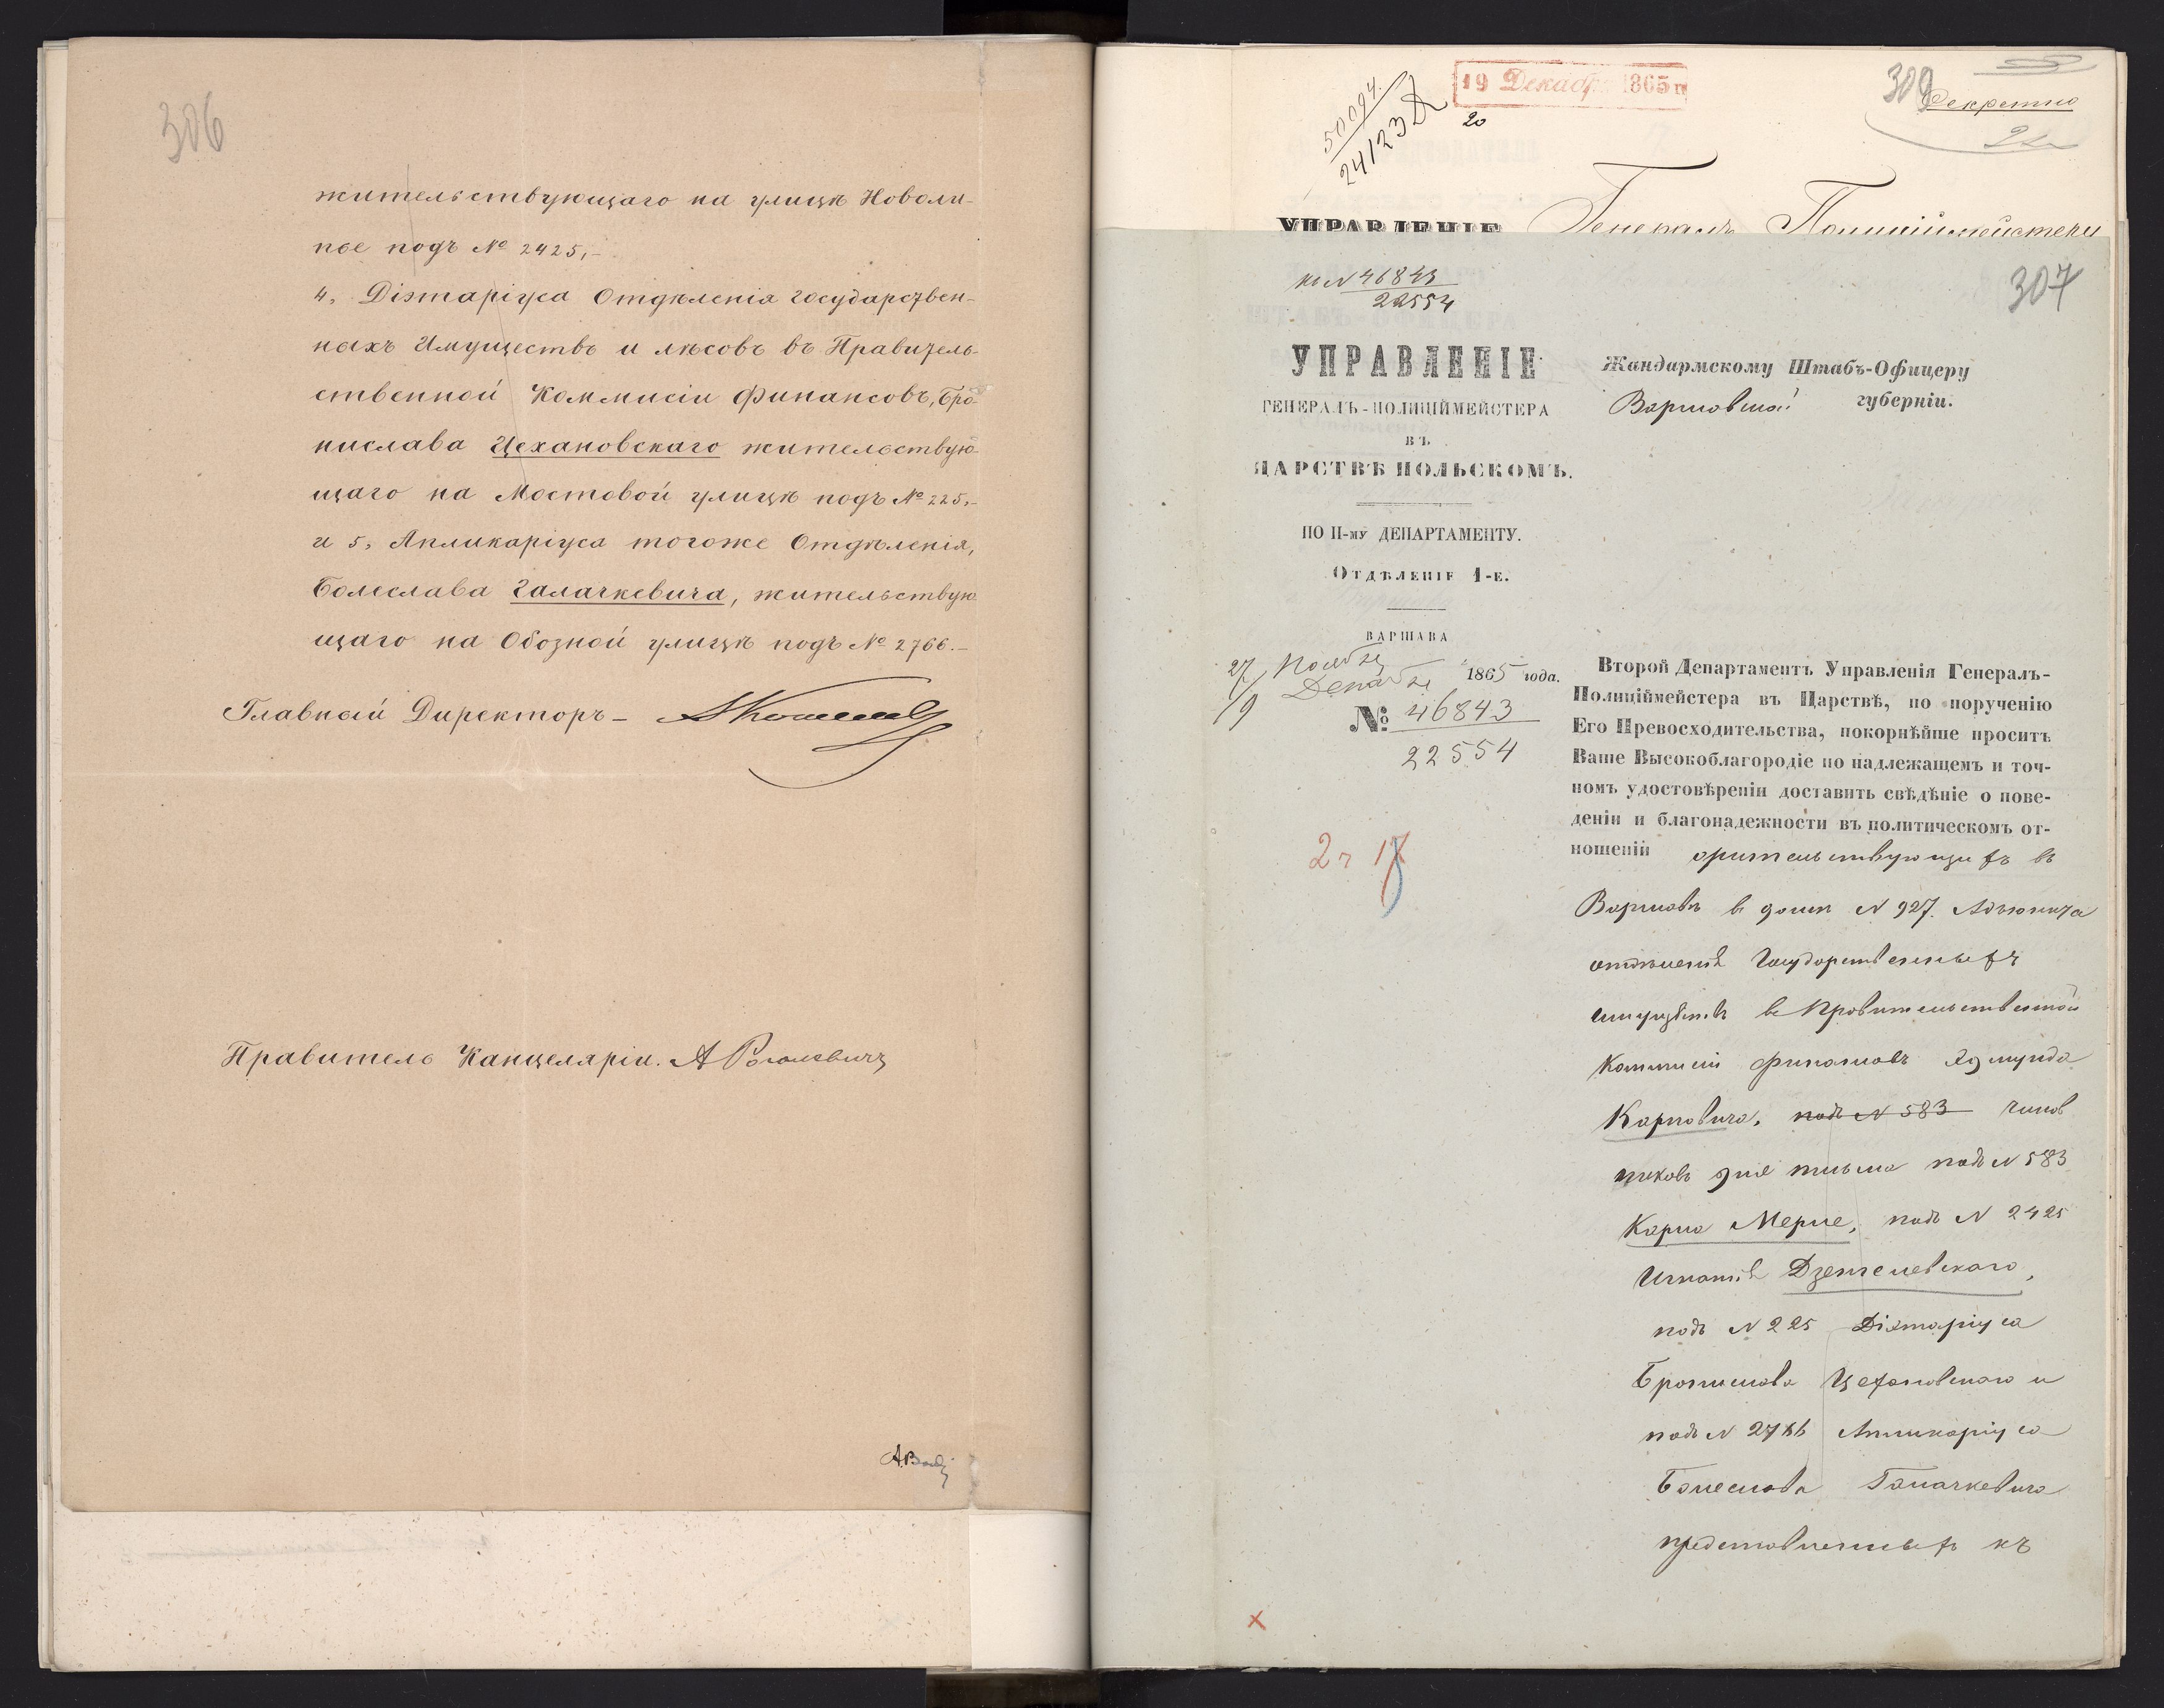 306
жительствующаго на улицѣ Новоли-
пье подъ № 2425,-
4, Діэтаріуса Отдѣленія государствен-
ныхъ Имуществъ и лѣсовъ въ Правитель-
ственной Коммисіи Финансовъ, Бро-
нислава Цехановскаго жительствую-
щаго на Мостовой улицѣ подъ № 225,-
и 5, Апликаріуса тогоже Отдѣленія,
Болеслава Галачкевича, жительствую
щаго на Обозной улицѣ подъ № 2766.-
Главный Директоръ -
Правитель Канцеляріи. А
50094.
24123
19 Декабр 1865 г
20
309
Секретно
УПРАВЛЕНІЕ
Генералъ Полиціймейстеру
къ № 46843
22554
307
УПРАВЛЕНІЕ
ГЕНЕРАЛЪ-ПОЛИЦІЙМЕЙСТЕРА
ВЪ
ЦАРСТВѢ ПОЛЬСКОМЪ.
ПО II-му ДЕПАРТАМЕНТУ.
Отдѣленіе 1-е.
ВАРШАВА
27/9 Ноября/Декабря 1865 года.
№ 46843
22554
2 ч 17
Жандармскому Штабъ-Офицеру
Варшавской губерніи.
Второй Департаментъ Управленія Генералъ-
Полиціймейстера въ Царствѣ, по порученію
Его Превосходительства, покорнѣйше проситъ
Ваше Высокоблагородіе по надлежащемъ и точ-
номъ удостовѣреніи доставить свѣдѣніе о пове-
деніи и благонадежности въ политическомъ от-
ношеніи жительствующихъ въ
Варшавѣ въ домѣ N 927. Адъюнкта
отдѣленія Государственныхъ
имуществъ въ Правительственной
Коммисіи Финансовъ Эдмунда
Карповича, подъ N 583 чинов
никовъ для письма подъ N 583
Карла Мерле, подъ N 2425
Игнатія Дзенгелевскаго,
подъ N 225 Діэтаріуса
Бронислава Цехановскаго и
подъ N 2766 Аппликаріуса
Болеслава Галачкевича
представленныхъ къ